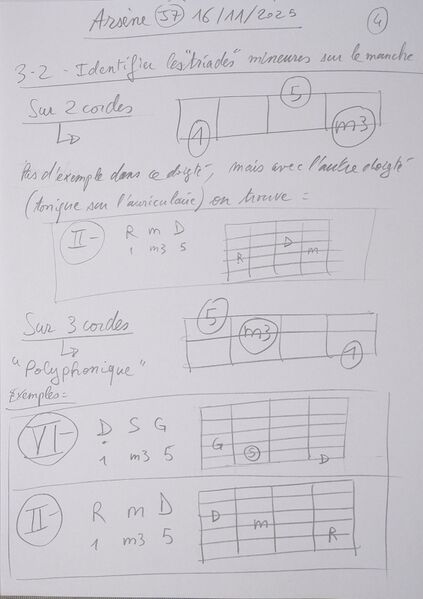 Arsène 57 16/11/2025
4
3-2 - Identifier les "triades" mineures sur le manche
Sur 2 cordes
5
1
m3
Pas d'exemple dans ce doigté, mais avec l'autre doigté
(tonique sur l'auriculaire) on trouve =
II- R m D
1 m3 5
D
R m
Sur 3 cordes
5
m3
1
"Polyphonique"
Exemples =
VI- D S G
1 m3 5
G S
D
II- R m D
1 m3 5
D
m
R